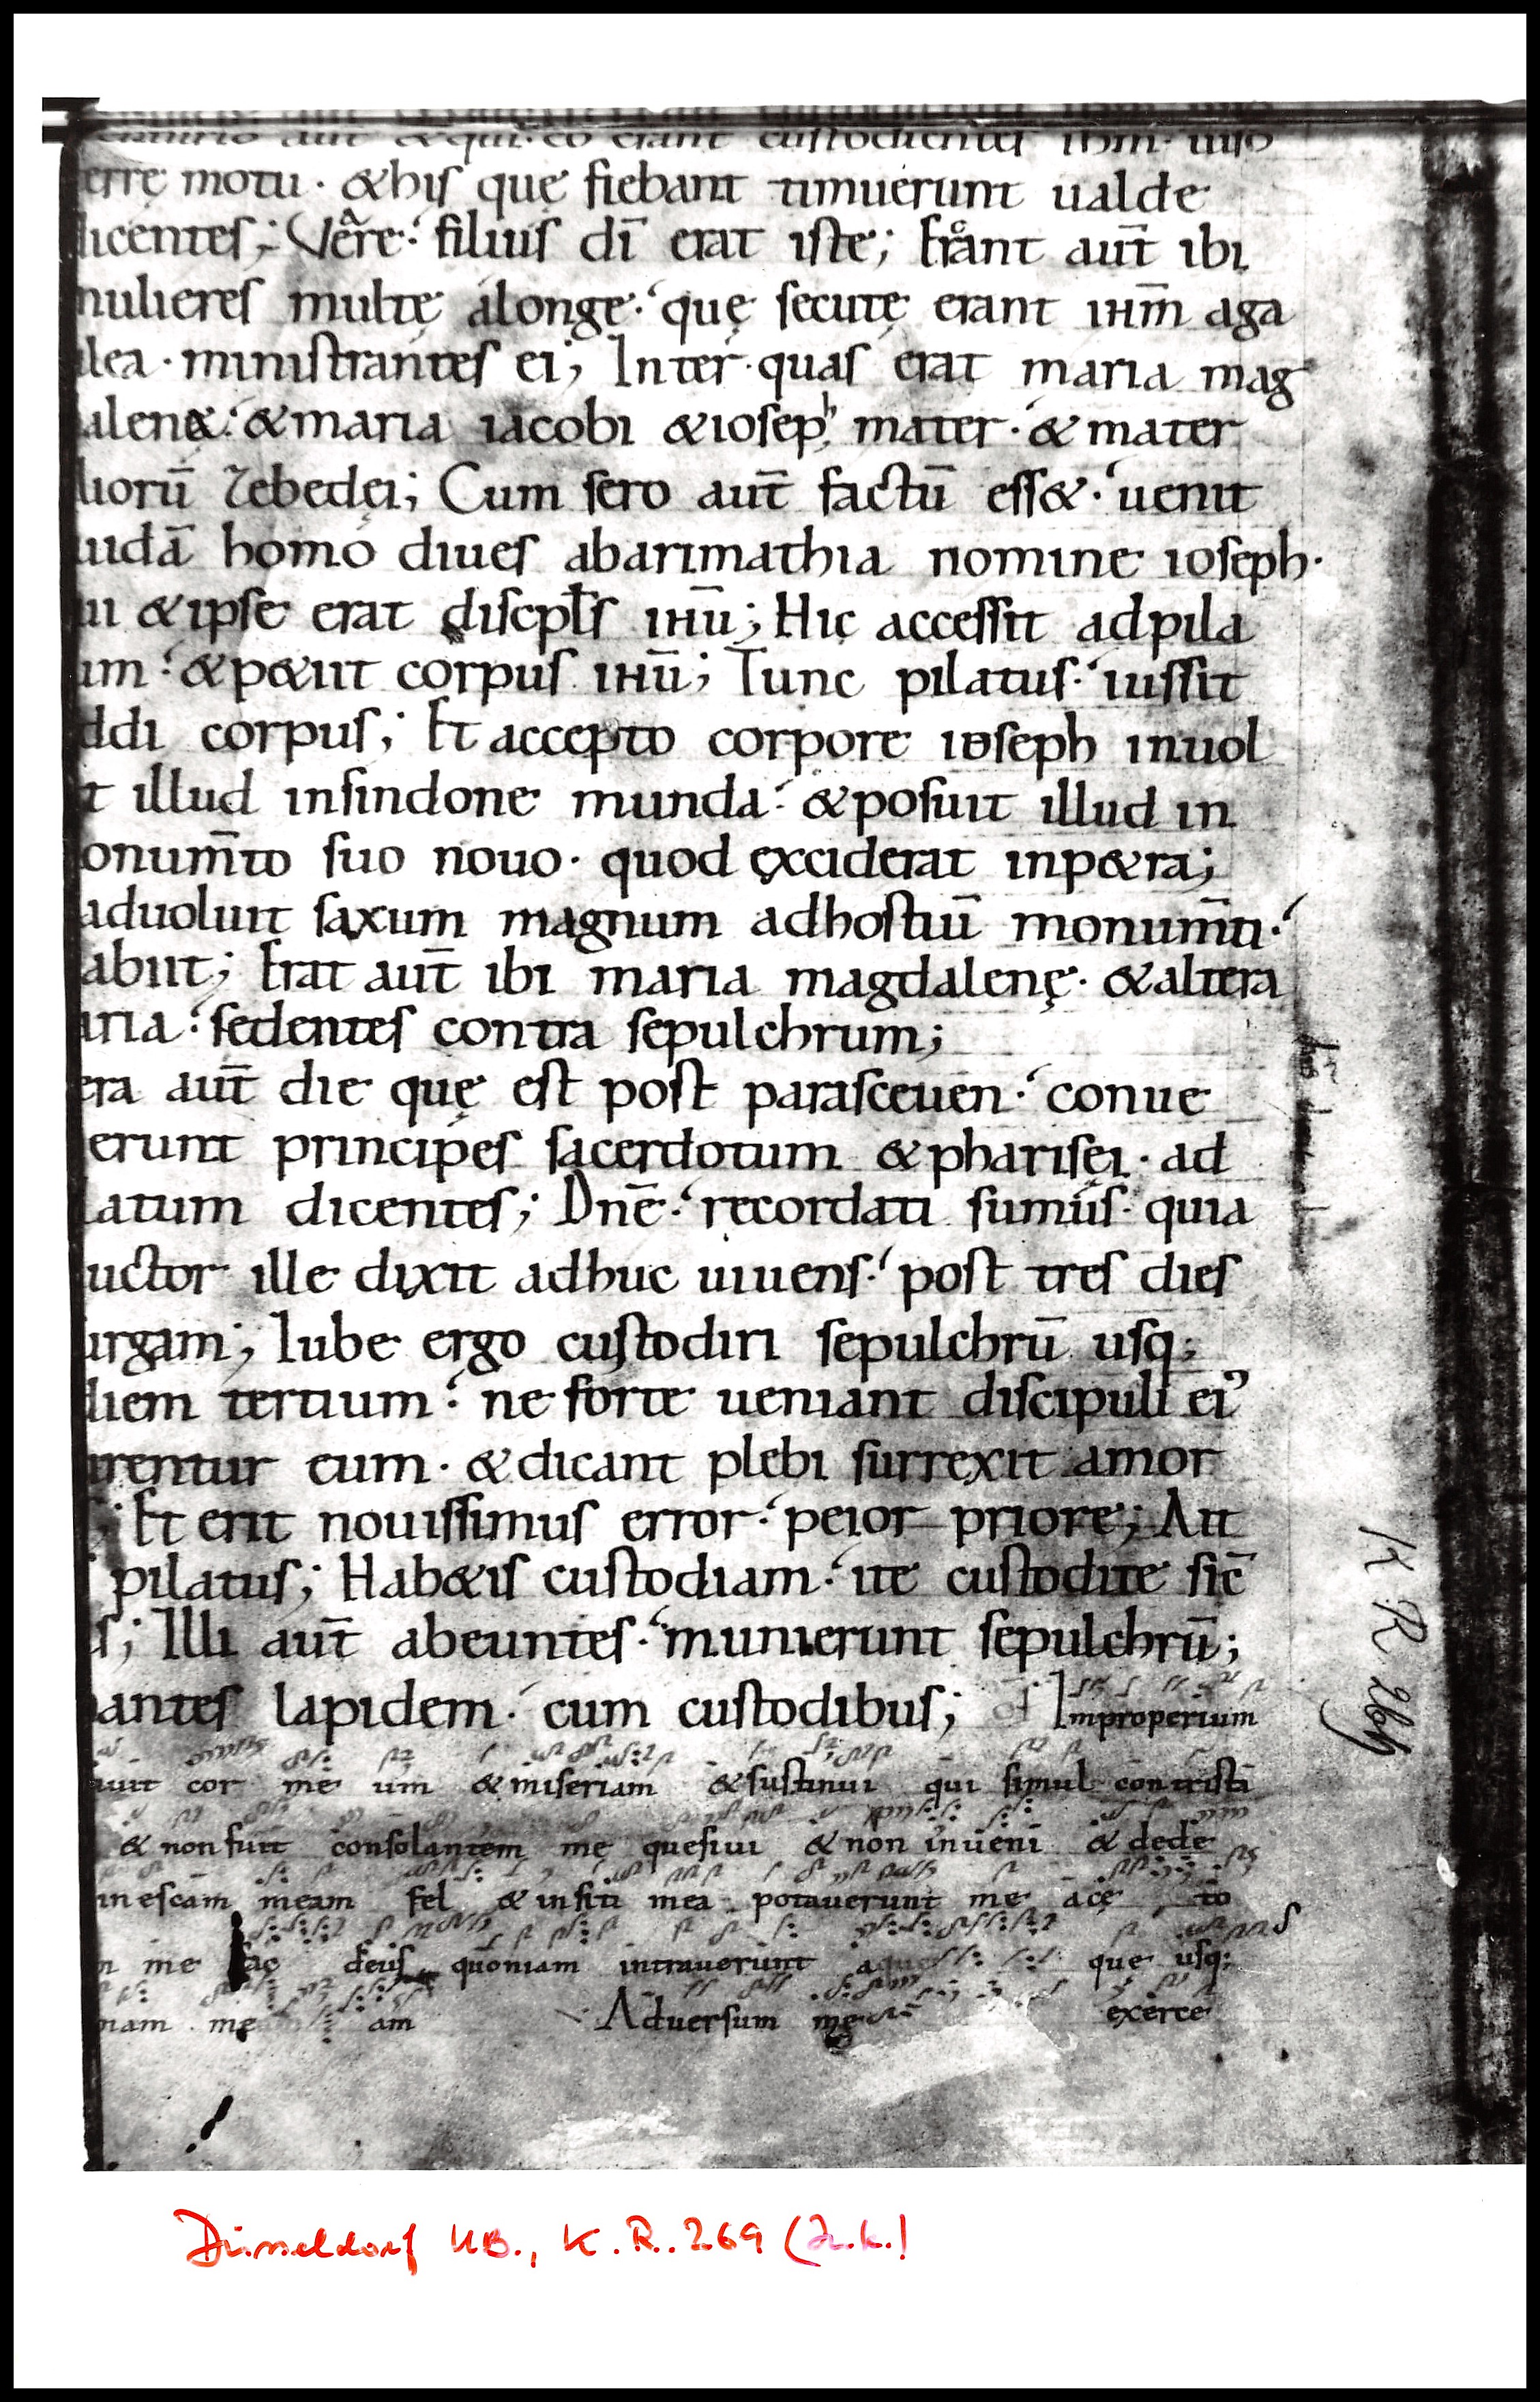 aut̄ & qui c̄ eo erant custodientes ihm̄. uiso
errę motu. & his quę fiebant timuerunt ualde
licentes; Vere. filius dī erat iste; Erant aut̄ ibi
nulieres multę alonge. quę secutę erant ihm̄ aga
lea. ministrantes ei; Inter quas erat maria mag
alenę. & maria iacobi & ioseph mater. & mater
liorū zebedęi; Cum sero aut̄ factū ess&. uenit
uidā homo diues abarimathia nomine ioseph.
ui & ipse erat discpl̄s ihū; Hic accessit adpila
um. & p&iit corpus ihū; Tunc pilatus. iussit
ddi corpus; Et accepto corpore ioseph inuol
t illud insindone munda. & posuit illud in
onum̄to suo nouo. quod exciderat inp&ra;
aduoluit saxum magnum adhostiū monum̄ti.
abiit; Erat aut̄ ibi maria magdalenę. & altera
aria. sedentes contra sepulchrum;
era aut̄ die quę est post parasceuen. conue
erunt principes sacerdotum & pharisęi. ad
latum dicentes; Dnē. recordati sumus. quia
uctor ille dixit adhuc uiuens. post tres dies
urgam; Iube ergo custodiri sepulchrū usq;
diem tertium. ne forte ueniant discipuli ei᾿
urentur eum. & dicant plebi surrexit amor
; Et erit nouissimus error. peior priore; Ait
s pilatus; Hab&is custodiam. ite custodite sic̄
is; Illi aut̄ abeuntes. munierunt sepulchrū;
nantes lapidem. cum custodibus; of Improperium
uit cor me um & miseriam & sustinui qui simul contristā
& non fuit consolantem me quesiui & non inueni & dede
in escam meam fel & insiti mea potauerunt me ace to
m me fac deus quoniam intrauerunt aque que usq;
nam me am Aduersum me exerce
K R 269
Düsseldorf UB., K.R. 269 (2.k.)